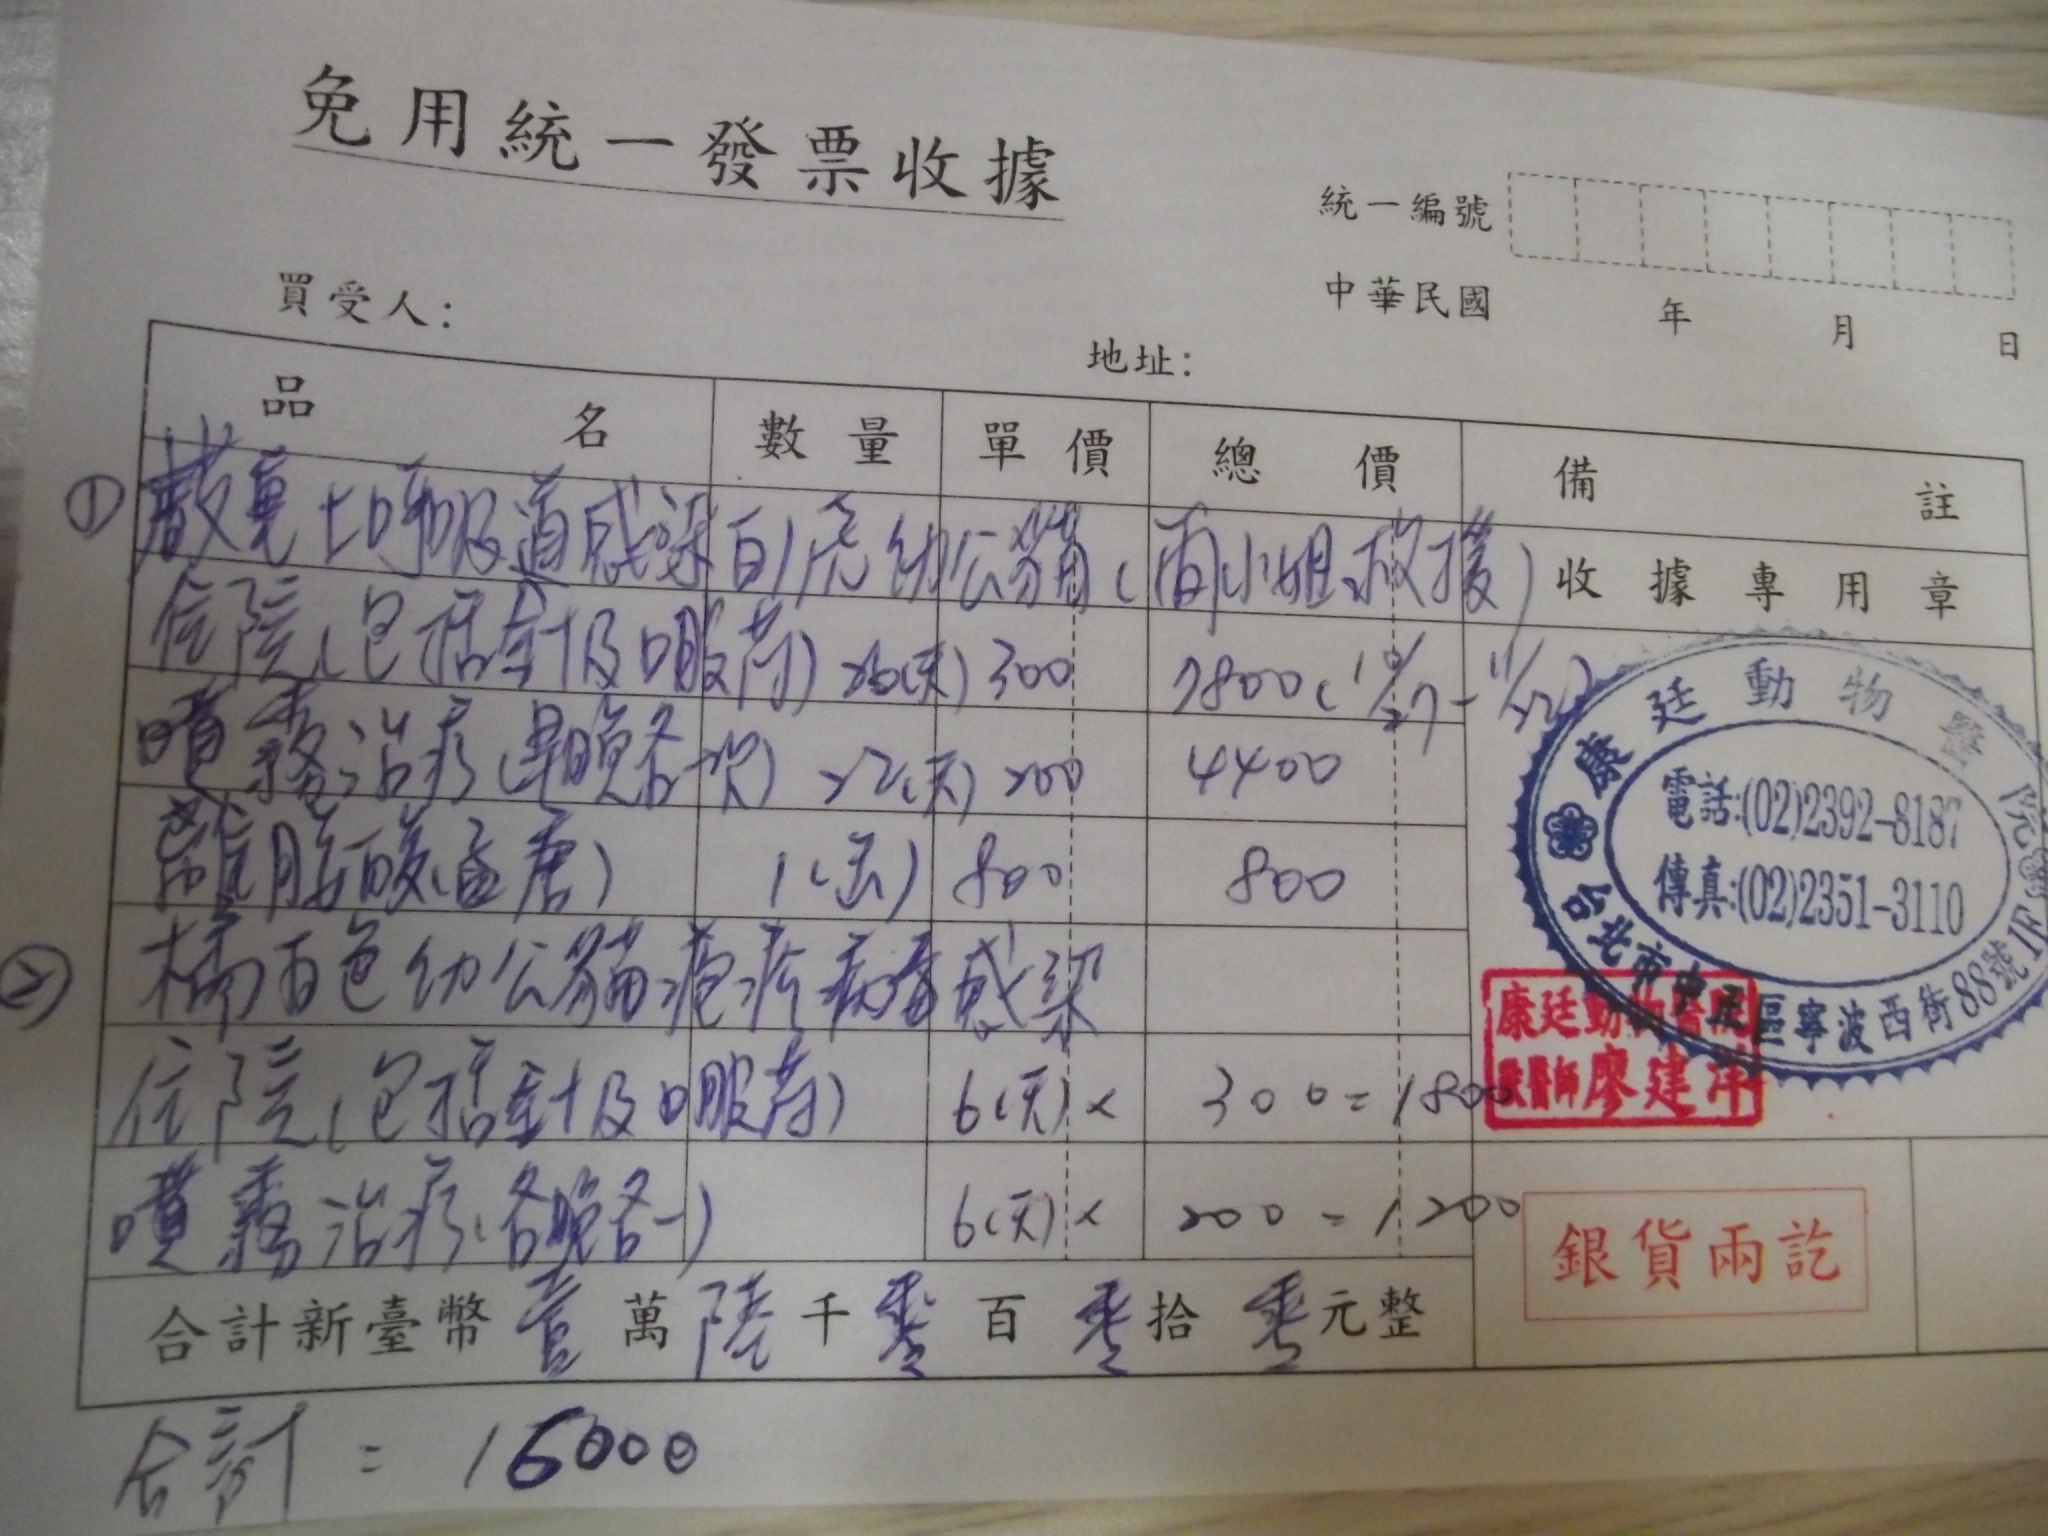 免用統一發票收據
統一編號
買受人:
中華民國 年 月 日
地址:
品名 數量 單價 總價 備註
① 上呼吸道感染白虎幼公貓(雨小姐救援)
收據專用章
住院(包括針及口服葯) 26(天) 300 7800(10/27-11/22)
噴霧治疗(早晚各一次) 22(天) 200 4400
1( ) 800 800
② 橘白色幼公貓疱疹病毒感染
住院(包括針及口服葯) 6(天)× 300=1800
噴霧治疗(各晚各一) 6(天)× 200=1200
合計新臺幣壹萬陸千零百零拾零元整
合計=16000
康廷動物醫院
電話:(02)2392-8187
傳真:(02)2351-3110
台北市中正區寧波西街88號1F
康廷動物醫院
獸醫師廖建洋
銀貨兩訖